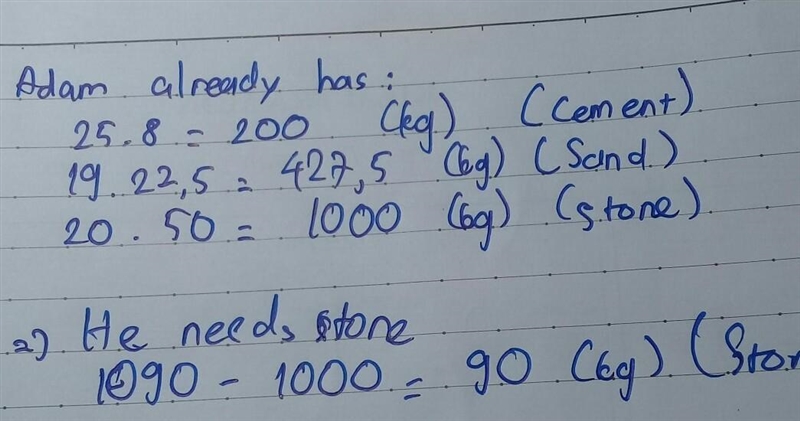 Adam already has:
25.8 = 200 (kg) (Cement)
19.22,5 = 427,5 (kg) (Sand)
20.50 = 1000 (kg) (stone)
2) He needs stone
1090 - 1000 = 90 (kg) (Ston